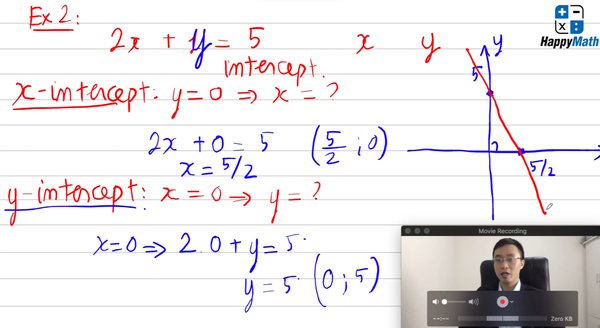 Ex 2:
HappyMath
2x + y = 5
x y
intercept.
x-intercept: y=0 ⇒ x = ?
2x + 0 = 5 (5/2 ; 0)
x = 5/2
y-intercept: x = 0 ⇒ y = ?
x=0 ⇒ 2.0 + y = 5.
y = 5 (0 ; 5)
y
5
5/2
Movie Recording
--:-- Zero KB